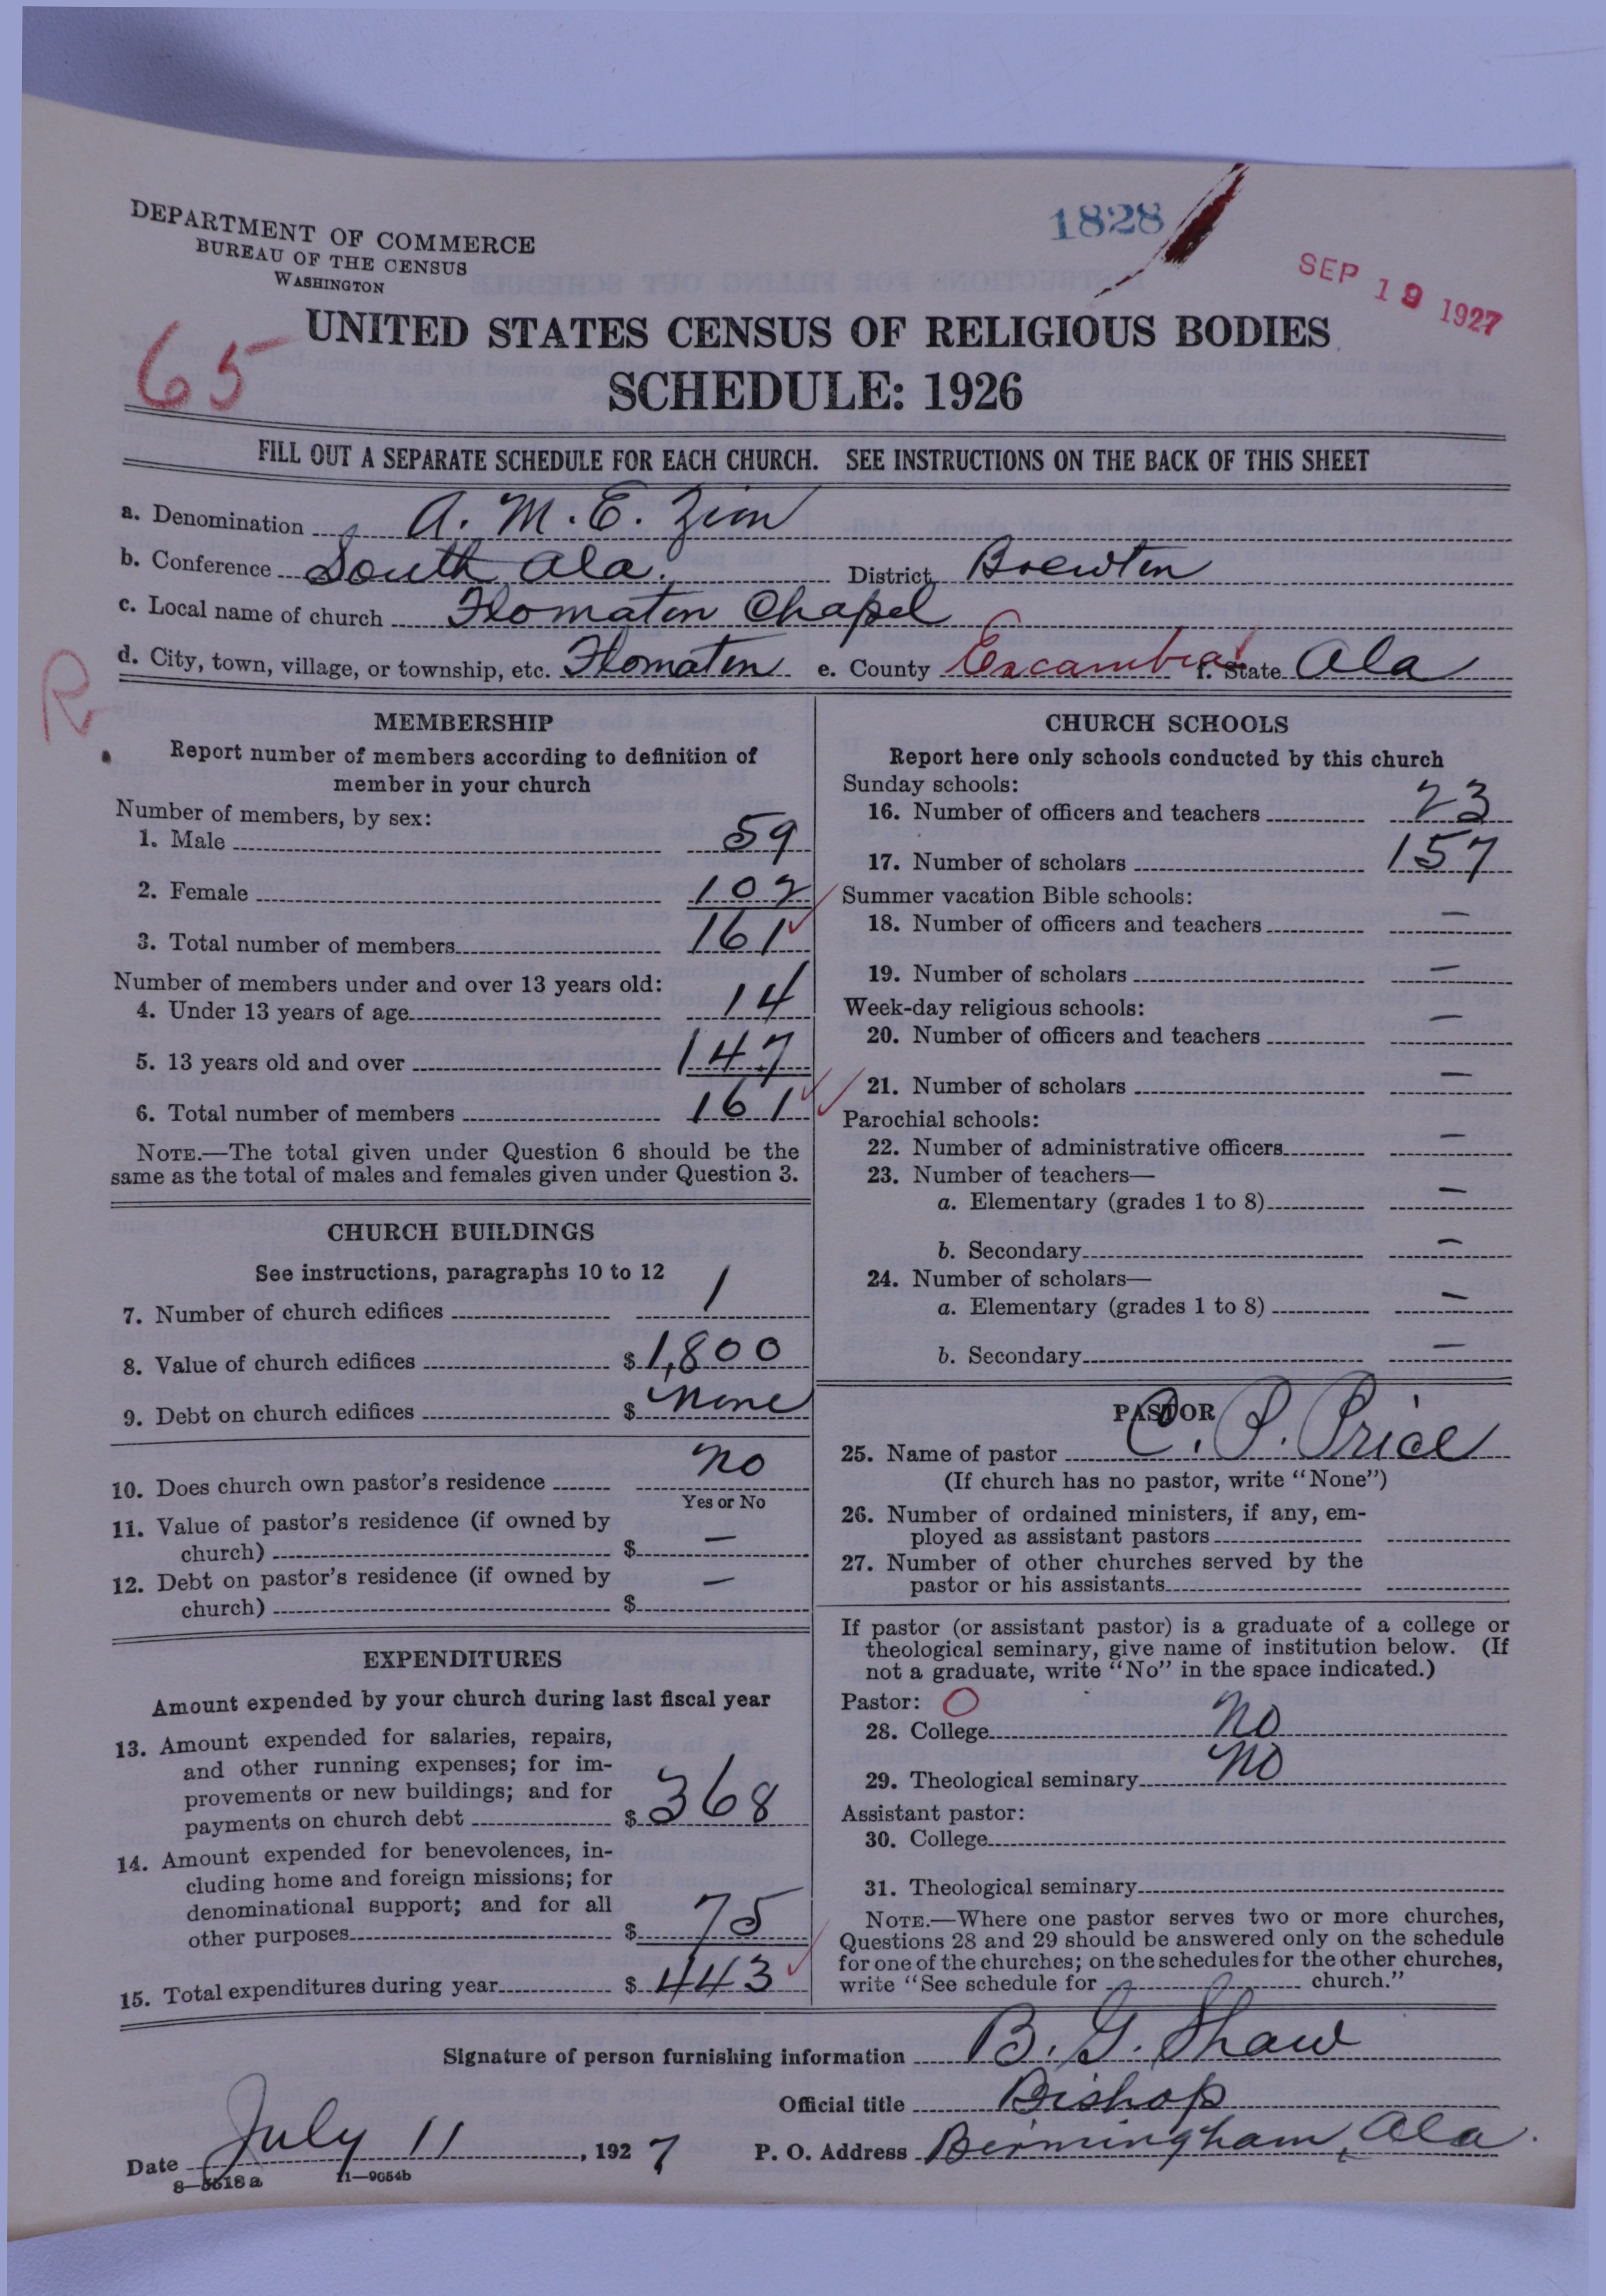 DEPARTMENT OF COMMERCE
BUREAU OF THE CENSUS
WASHINGTON
1828
SEP 19 1927
65
UNITED STATES CENSUS OF RELIGIOUS BODIES
SCHEDULE: 1926
FILL OUT A SEPARATE SCHEDULE FOR EACH CHURCH. SEE INSTRUCTIONS ON THE BACK OF THIS SHEET
a. Denomination A. M. E. Zion
b. Conference South Ala. District Brewton
c. Local name of church Flomaton Chapel
d. City, town, village, or township, etc. Flomaton e. County Escambia f. State Ala
R
MEMBERSHIP
Report number of members according to definition of
member in your church
Number of members, by sex:
1. Male 59
2. Female 102
3. Total number of members 161
Number of members under and over 13 years old:
4. Under 13 years of age 14
5. 13 years old and over 147
6. Total number of members 161
NOTE.—The total given under Question 6 should be the
same as the total of males and females given under Question 3.
CHURCH BUILDINGS
See instructions, paragraphs 10 to 12
7. Number of church edifices 1
8. Value of church edifices $ 1,800
9. Debt on church edifices $ None
10. Does church own pastor's residence No
Yes or No
11. Value of pastor's residence (if owned by
church) $ —
12. Debt on pastor's residence (if owned by
church) $ —
EXPENDITURES
Amount expended by your church during last fiscal year
13. Amount expended for salaries, repairs,
and other running expenses; for im-
provements or new buildings; and for
payments on church debt $ 368
14. Amount expended for benevolences, in-
cluding home and foreign missions; for
denominational support; and for all
other purposes $ 75
15. Total expenditures during year $ 443
CHURCH SCHOOLS
Report here only schools conducted by this church
Sunday schools:
16. Number of officers and teachers 23
17. Number of scholars 157
Summer vacation Bible schools:
18. Number of officers and teachers —
19. Number of scholars —
Week-day religious schools:
20. Number of officers and teachers —
21. Number of scholars —
Parochial schools:
22. Number of administrative officers —
23. Number of teachers—
a. Elementary (grades 1 to 8) —
b. Secondary —
24. Number of scholars—
a. Elementary (grades 1 to 8) —
b. Secondary —
PASTOR
25. Name of pastor C. P. Price
(If church has no pastor, write "None")
26. Number of ordained ministers, if any, em-
ployed as assistant pastors
27. Number of other churches served by the
pastor or his assistants
If pastor (or assistant pastor) is a graduate of a college or
theological seminary, give name of institution below. (If
not a graduate, write "No" in the space indicated.)
Pastor: O
28. College No
29. Theological seminary No
Assistant pastor:
30. College
31. Theological seminary
NOTE.—Where one pastor serves two or more churches,
Questions 28 and 29 should be answered only on the schedule
for one of the churches; on the schedules for the other churches,
write "See schedule for church."
Signature of person furnishing information B. G. Shaw
Official title Bishop
Date July 11, 1927 P. O. Address Birmingham, Ala.
8—5518a 11—9054b